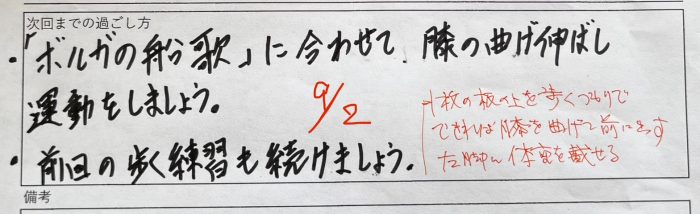 次回までの過ごし方
・「ボルガの舟歌」に合わせて、膝の曲げ伸ばし
運動をしましょう。
9/2
・前回の歩く練習も続けましょう。
一枚の板の上を歩くつもりで
できれば膝を曲げて前に出す
左脚に体重を載せる
備考